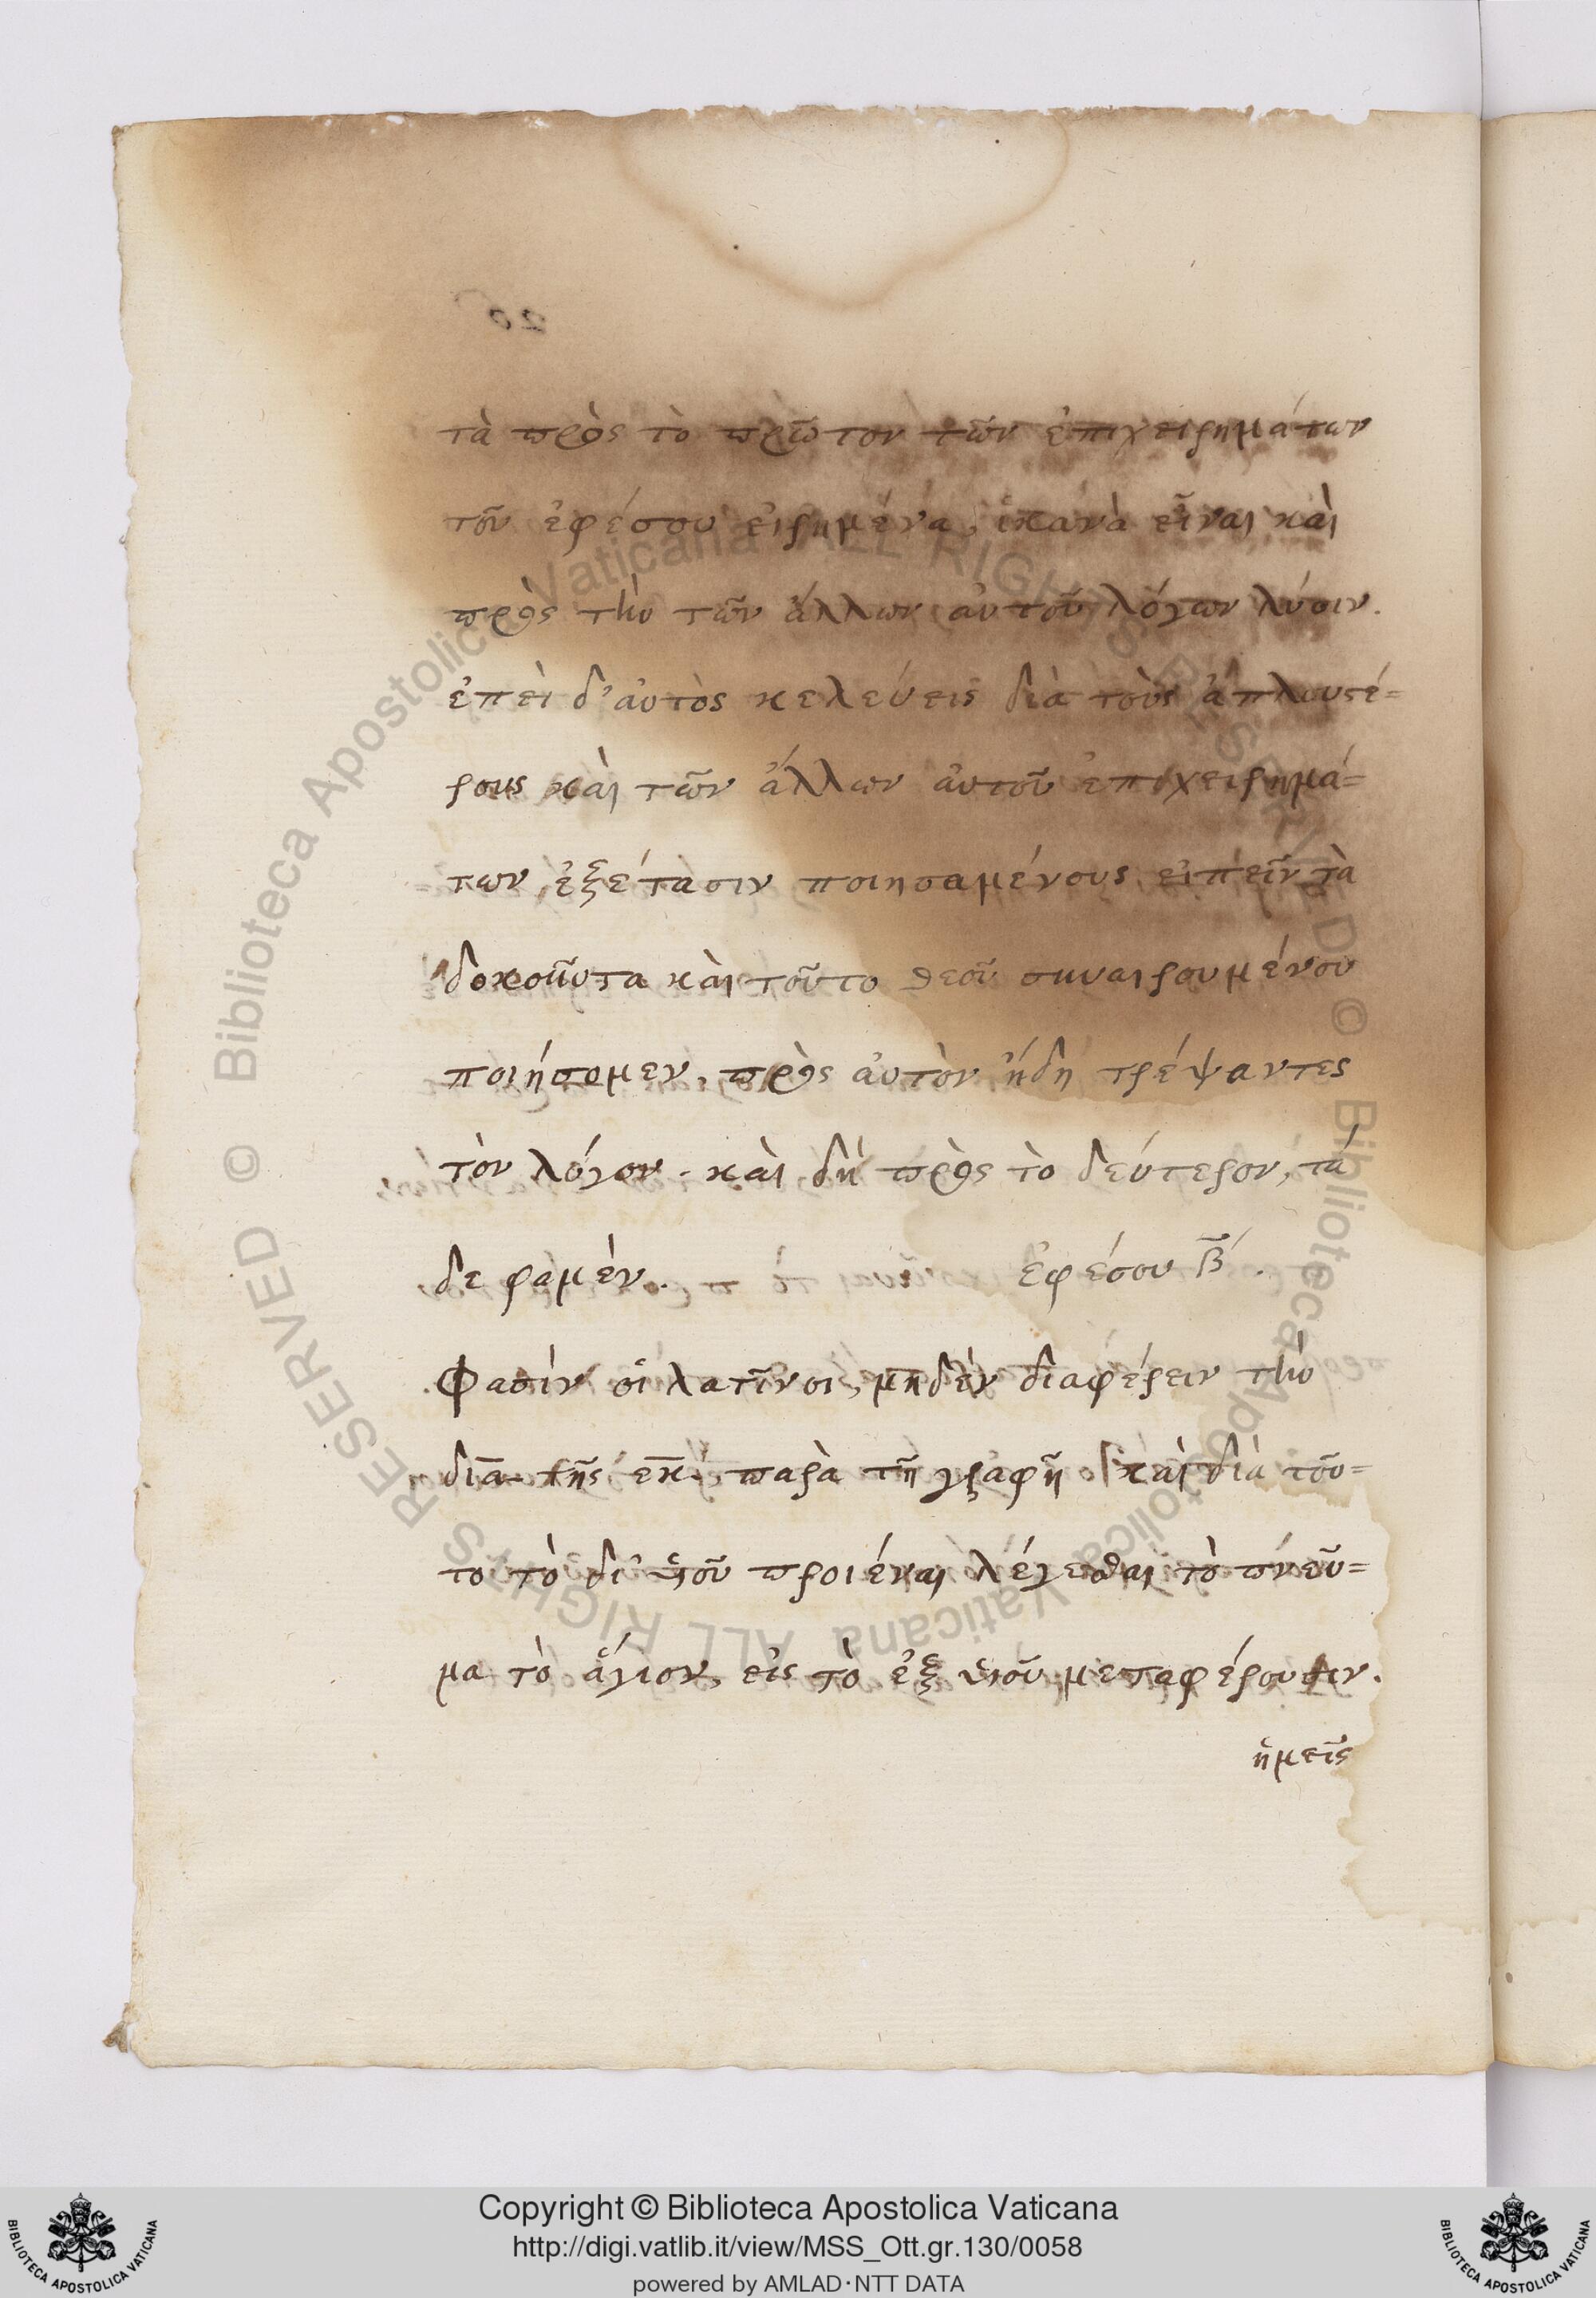 τὰ πρὸς τὸ πρῶτον τῶν ἐπιχειρημάτων
τοῦ ἐφέσου εἰρημένα, ἱκανὰ εἶναι καὶ
πρὸς τὴν τῶν ἄλλων αὐτοῦ λόγων λύσιν.
ἐπεὶ δ' αὐτὸς κελεύεις διὰ τοὺς ἁπλουστέ=
ρους καὶ τῶν ἄλλων αὐτοῦ ἐπιχειρημά=
των ἐξέτασιν ποιησαμένους εἰπεῖν τὰ
δοκοῦντα καὶ τοῦτο θεοῦ συναιρουμένου
ποιήσομεν, πρὸς αὐτὸν ἤδη τρέψαντες
τὸν λόγον. καὶ δὴ πρὸς τὸ δεύτερον, τά
δε φαμέν. ἐφέσου β̅.
Φασὶν οἱ λατῖνοι, μηδὲν διαφέρειν τὴν
δια̅ τῆς εκ̅, παρὰ τῇ γραφῇ. καὶ διὰ τοῦ=
το τὸ δι' υἱοῦ προιέναι λέγεσθαι τὸ πνεῦ=
μα τὸ ἅγιον, εἰς τὸ ἐξ υἱοῦ μεταφέρουσιν.
ἡμεῖς
Copyright © Biblioteca Apostolica Vaticana
http://digi.vatlib.it/view/MSS_Ott.gr.130/0058
powered by AMLAD·NTT DATA